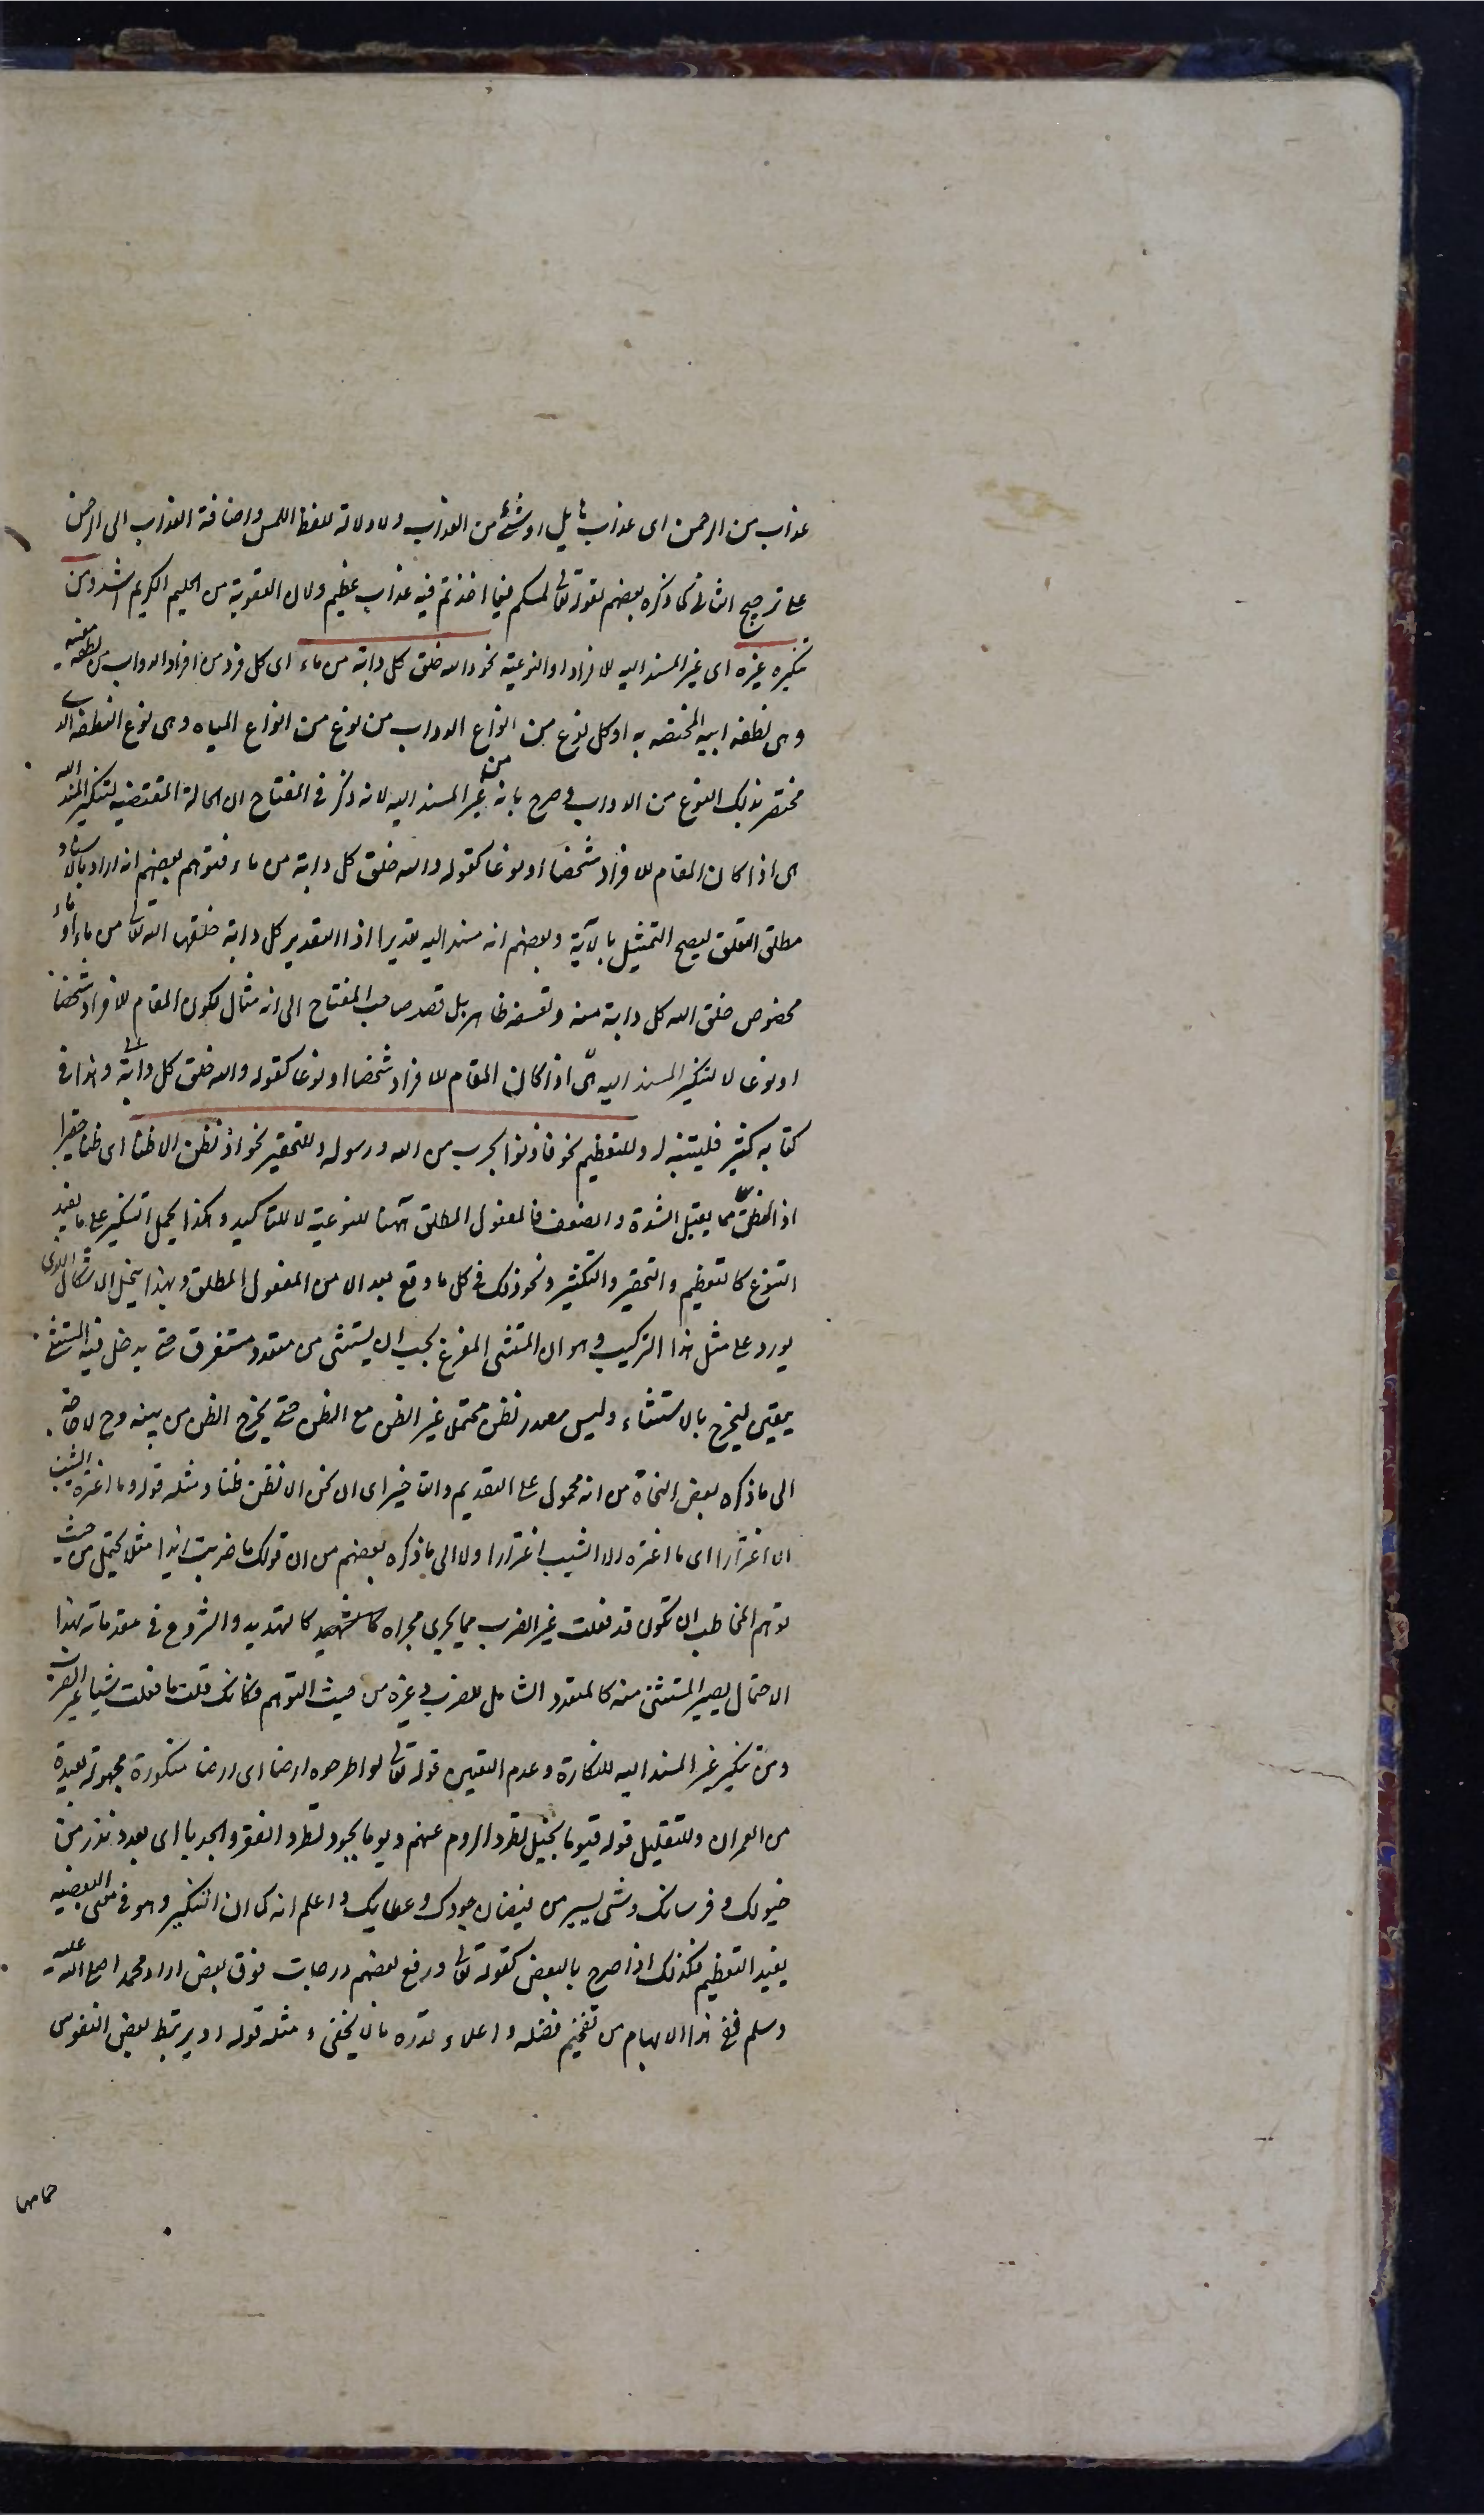 عذاب من الرحمن اى عذاب هايل او شئ من العذاب ولا دلالة للفظ المس واضافة العذاب الى الرحمن
على ترجيح الثانى كما ذكره بعضهم لقوله تعالى لمسكم فيما اخذتم فيه عذاب عظيم ولان العقوبة من الحليم الكريم اشد ومن
تنكيره غيره اى غير المسند اليه للافراد او النوعية نحو والله خلق كل دابة من ماء اى كل فرد من افراد الدواب من نطفة معينة
وهى نطفة ابيه المختصة به او كل نوع من انواع الدواب من نوع من انواع المياه وهى نوع النطفة التى
تختص بذلك النوع من الدواب وصرح بانه من غير المسند اليه لانه ذكر فى المفتاح ان الحالة المقتضية لتنكير المسند اليه
هى اذا كان المقام للافراد شخصا او نوعا كقوله والله خلق كل دابة من ماء فتوهم بعضهم انه اراد بالاسناد
مطلق التعلق ليصح التمثيل بالآية وبعضهم انه مسند اليه تقديرا اذ التقدير كل دابة خلقها الله تعالى من ماء او ماء
مخصوص خلق الله كل دابة منه وتعسفه ظاهر بل قصد صاحب المفتاح الى انه مثال لكون المقام للافراد شخصا
او نوعا لا لتنكير المسند اليه اى اذا كان المقام للافراد شخصا او نوعا كقوله والله خلق كل دابة وهذا فى
كتابه كثير فليتنبه له وللتعظيم نحو فاذنوا بحرب من الله ورسوله وللتحقير نحو ان نظن الا ظنا اى ظنا حقيرا
اذ الظن مما يقبل الشدة والضعف فالمفعول المطلق ههنا للنوعية لا للتاكيد وهكذا يحمل التنكير على ما يفيد
التنوع كالتعظيم والتحقير والتكثير ونحو ذلك فى كل ما وقع بعد الا من المفعول المطلق وبهذا ينحل الاشكال الذى
يورد على مثل هذا التركيب وهو ان المستثنى المفرغ يجب ان يستثنى من متعدد مستغرق حتى يدخل فيه المستثنى
بيقين ليخرج بالاستثناء وليس مصدر نظن محتملا غير الظن مع الظن حتى يخرج الظن من بينه وح لا حاجة
الى ما ذكره بعض النحاة من انه محمول على التقديم والتاخير اى ان نحن الا نظن ظنا ومثله قوله وما اغتره الشيب
الا اغترارا اى ما اغتره الا الشيب اغترارا ولا الى ما ذكره بعضهم من ان قولك ما ضربت زيدا مثلا يحتمل من حيث
توهم المخاطب ان تكون قد فعلت غير الضرب مما يجرى مجراه كالتهديد والشروع فى مقدماته فبهذا
الاحتمال يصير المستثنى منه كالمتعدد الشامل للضرب وغيره من حيث التوهم فكانك قلت ما فعلت شيئا غير الضرب
ومن تنكير غير المسند اليه للنكارة وعدم التعيين قوله تعالى او اطرحوه ارضا اى ارضا منكورة مجهولة بعيدة
من العمران وللتقليل قوله فيوما بخيل تطرد الروم عنهم ويوما بجود تطرد الفقر والجدبا اى بعدد نزر من
خيولك وفرسانك وشئ يسير من فيضان جودك وعطائك واعلم انه كما ان التنكير وهو فى معنى البعضية
يفيد التعظيم فكذلك اذا صرح بالبعض كقوله تعالى ورفع بعضهم درجات فوق بعض اراد محمدا صلى الله عليه
وسلم ففى هذا الابهام من تفخيم فضله واعلاء قدره ما لا يخفى ومثله قوله او يرتبط بعض النفوس
حمامها